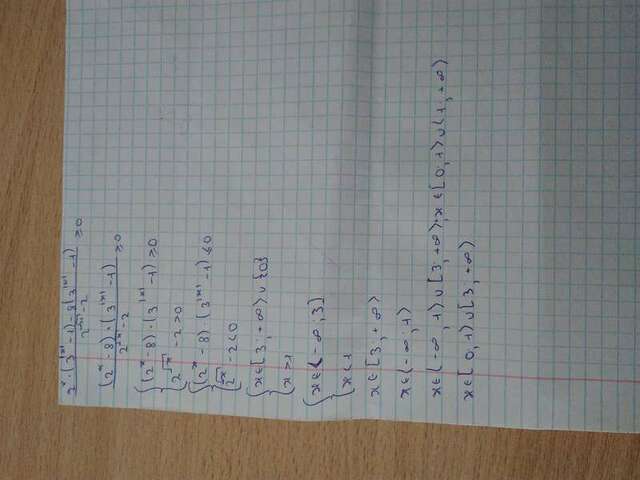 2ˣ·(3^|x| −1)−8(3^|x| −1) / 2^√x −2 ≥0
(2ˣ−8)·(3^|x| −1) / 2^√x −2 ≥0
{(2ˣ−8)·(3^|x| −1) ≥0
2^√x −2>0
{(2ˣ−8)(3^|x| −1) ≤0
2^√x −2<0
{x∈[3;+∞)∪{0}
x>1
{x∈(−∞;3]
x<1
x∈[3,+∞)
x∈(−∞;1)
x∈(−∞,1)∪[3;+∞), x∈[0;1)∪(1,+∞)
x∈[0,1)∪[3,+∞)